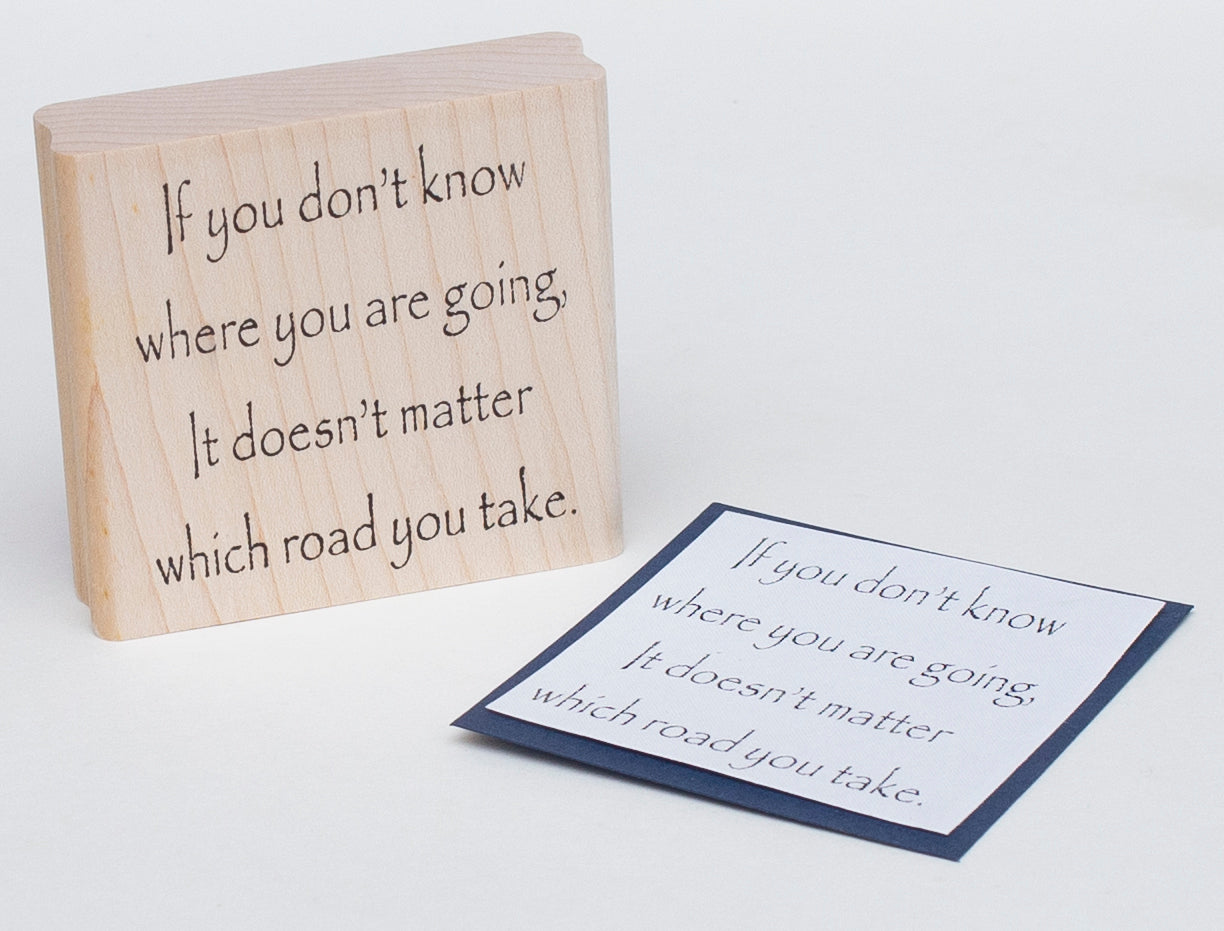 If you don't know
where you are going,
It doesn't matter
which road you take.
If you don't know
where you are going,
It doesn't matter
which road you take.